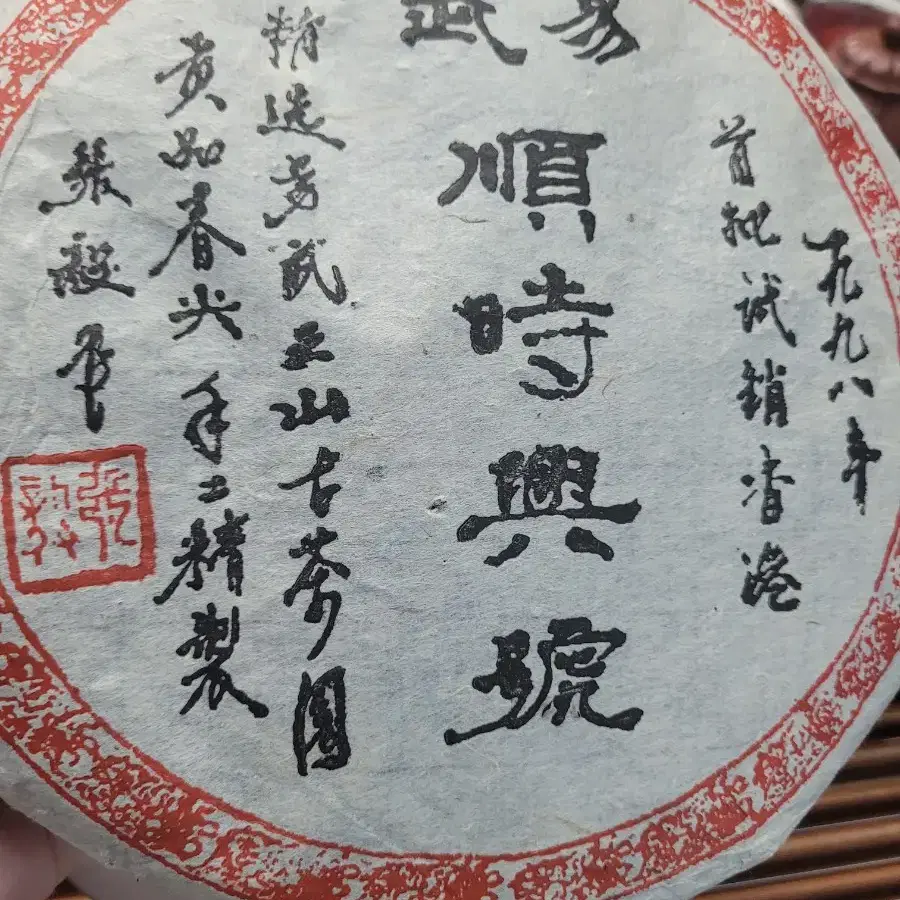 一九九八年
首批试銷香港
易武
順時興號
精选易武正山古茶園
贡品春尖手工精製
張毅